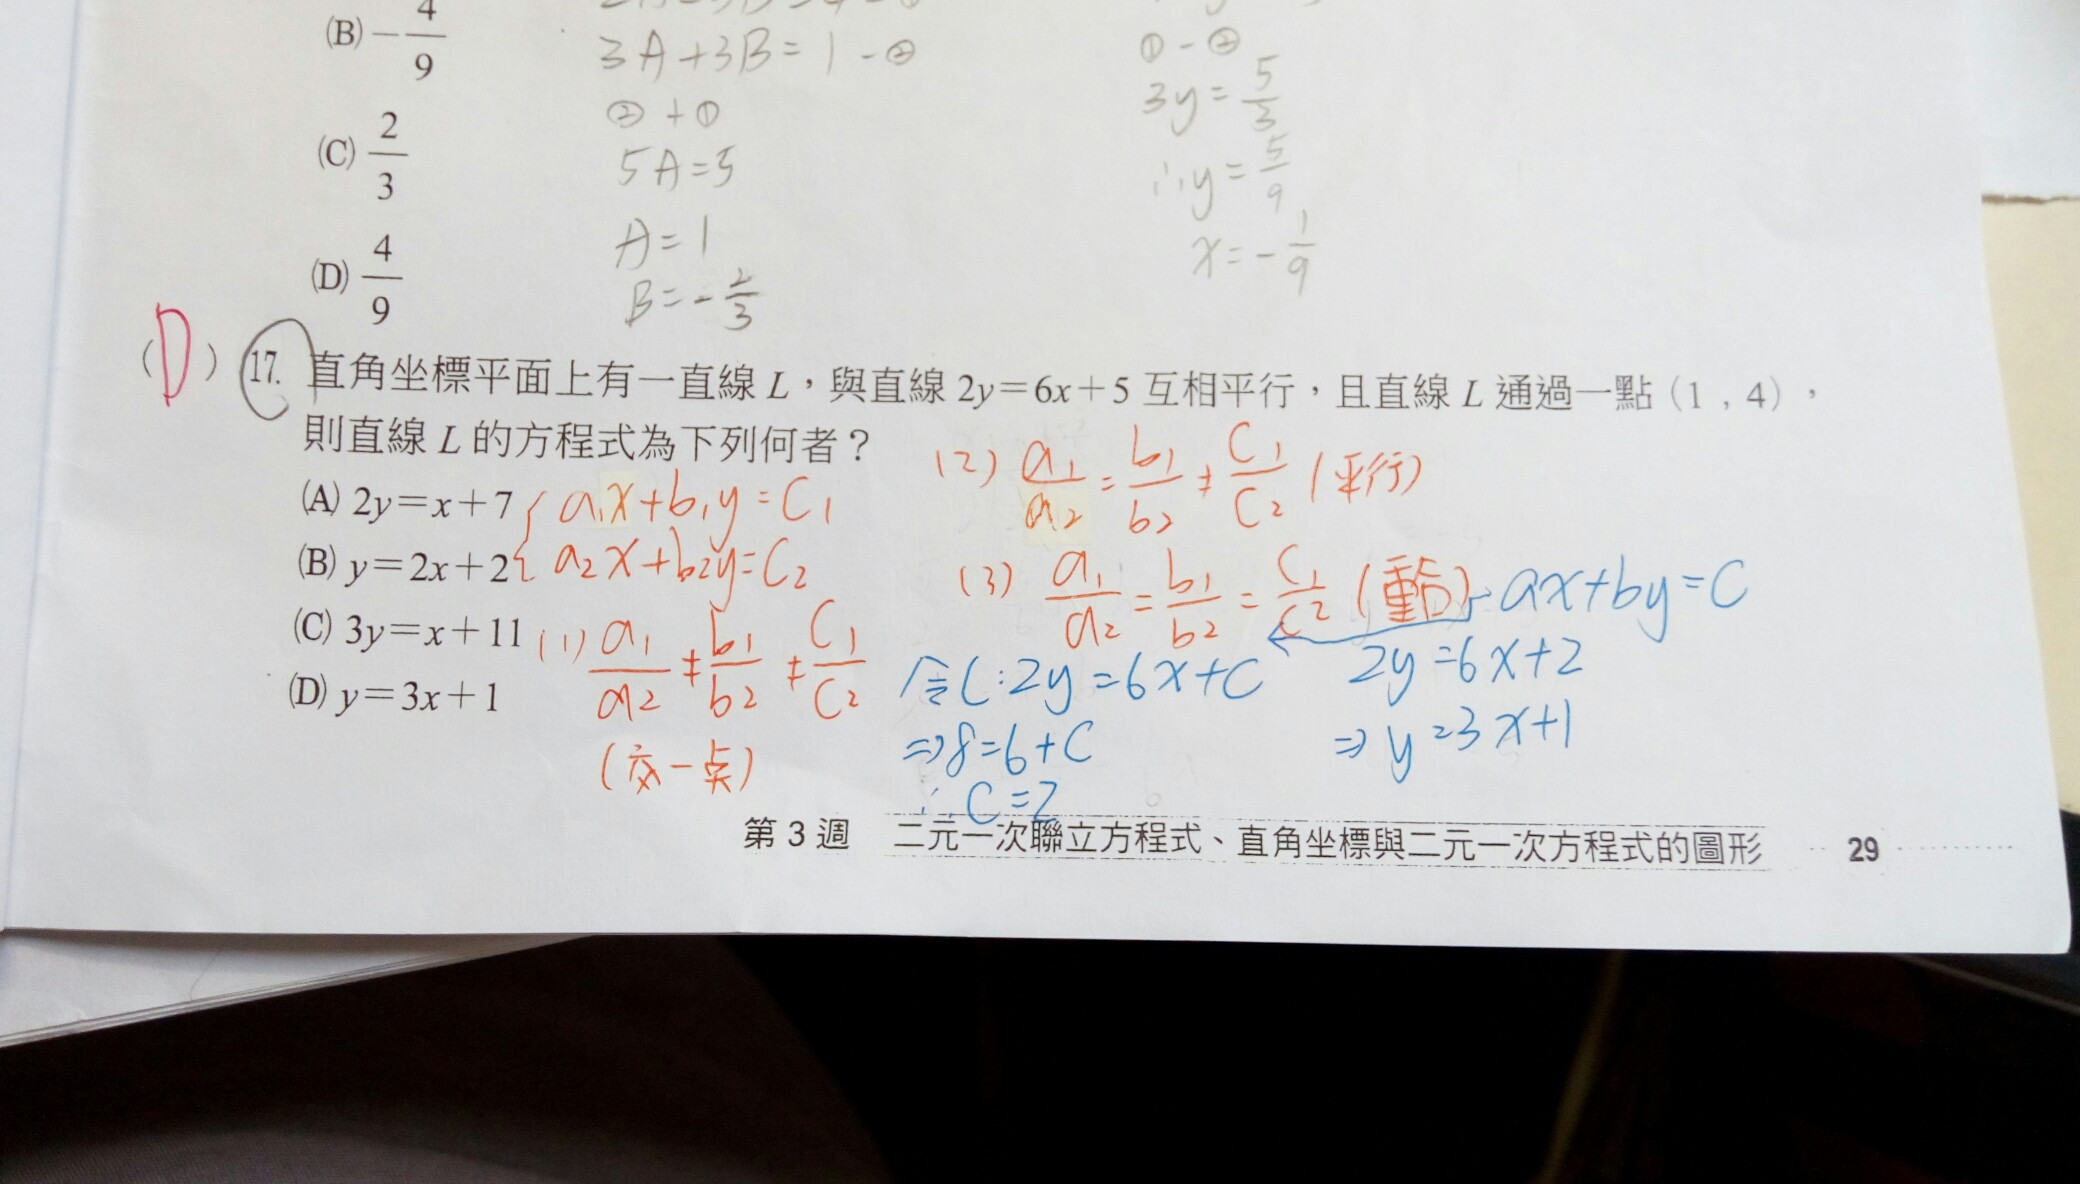 (B) −4/9
3A+3B=1-②
①-②
3y=5/3
②+①
(C) 2/3
5A=5
∴y=5/9
A=1
x=-1/9
(D) 4/9
B=-2/3
(D) 17. 直角坐標平面上有一直線 L，與直線 2y＝6x＋5 互相平行，且直線 L 通過一點（1 , 4），
則直線 L 的方程式為下列何者？
(A) 2y＝x＋7
(B) y＝2x＋2
(C) 3y＝x＋11
(D) y＝3x＋1
{ a₁x+b₁y=C₁
a₂x+b₂y=C₂
(1) a₁/a₂≠b₁/b₂≠C₁/C₂
(交一点)
(2) a₁/a₂=b₁/b₂≠C₁/C₂ (平行)
(3) a₁/a₂=b₁/b₂=C₁/C₂ (重合)
ax+by=C
令L:2y=6x+C
⇒8=6+C
∴C=2
2y=6x+2
⇒y=3x+1
第 3 週 二元一次聯立方程式、直角坐標與二元一次方程式的圖形 29